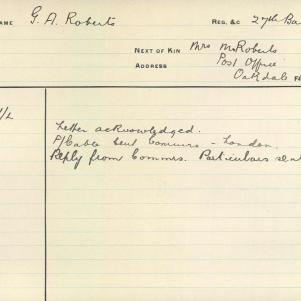 NAME G. A. Roberts REG. &C 27th Ba
NEXT OF KIN Mrs M. Roberts
ADDRESS Post Office
Oakdale
1/2
Letter acknowledged.
P/Cable sent Commrs - London.
Reply from Commrs. Particulars sent